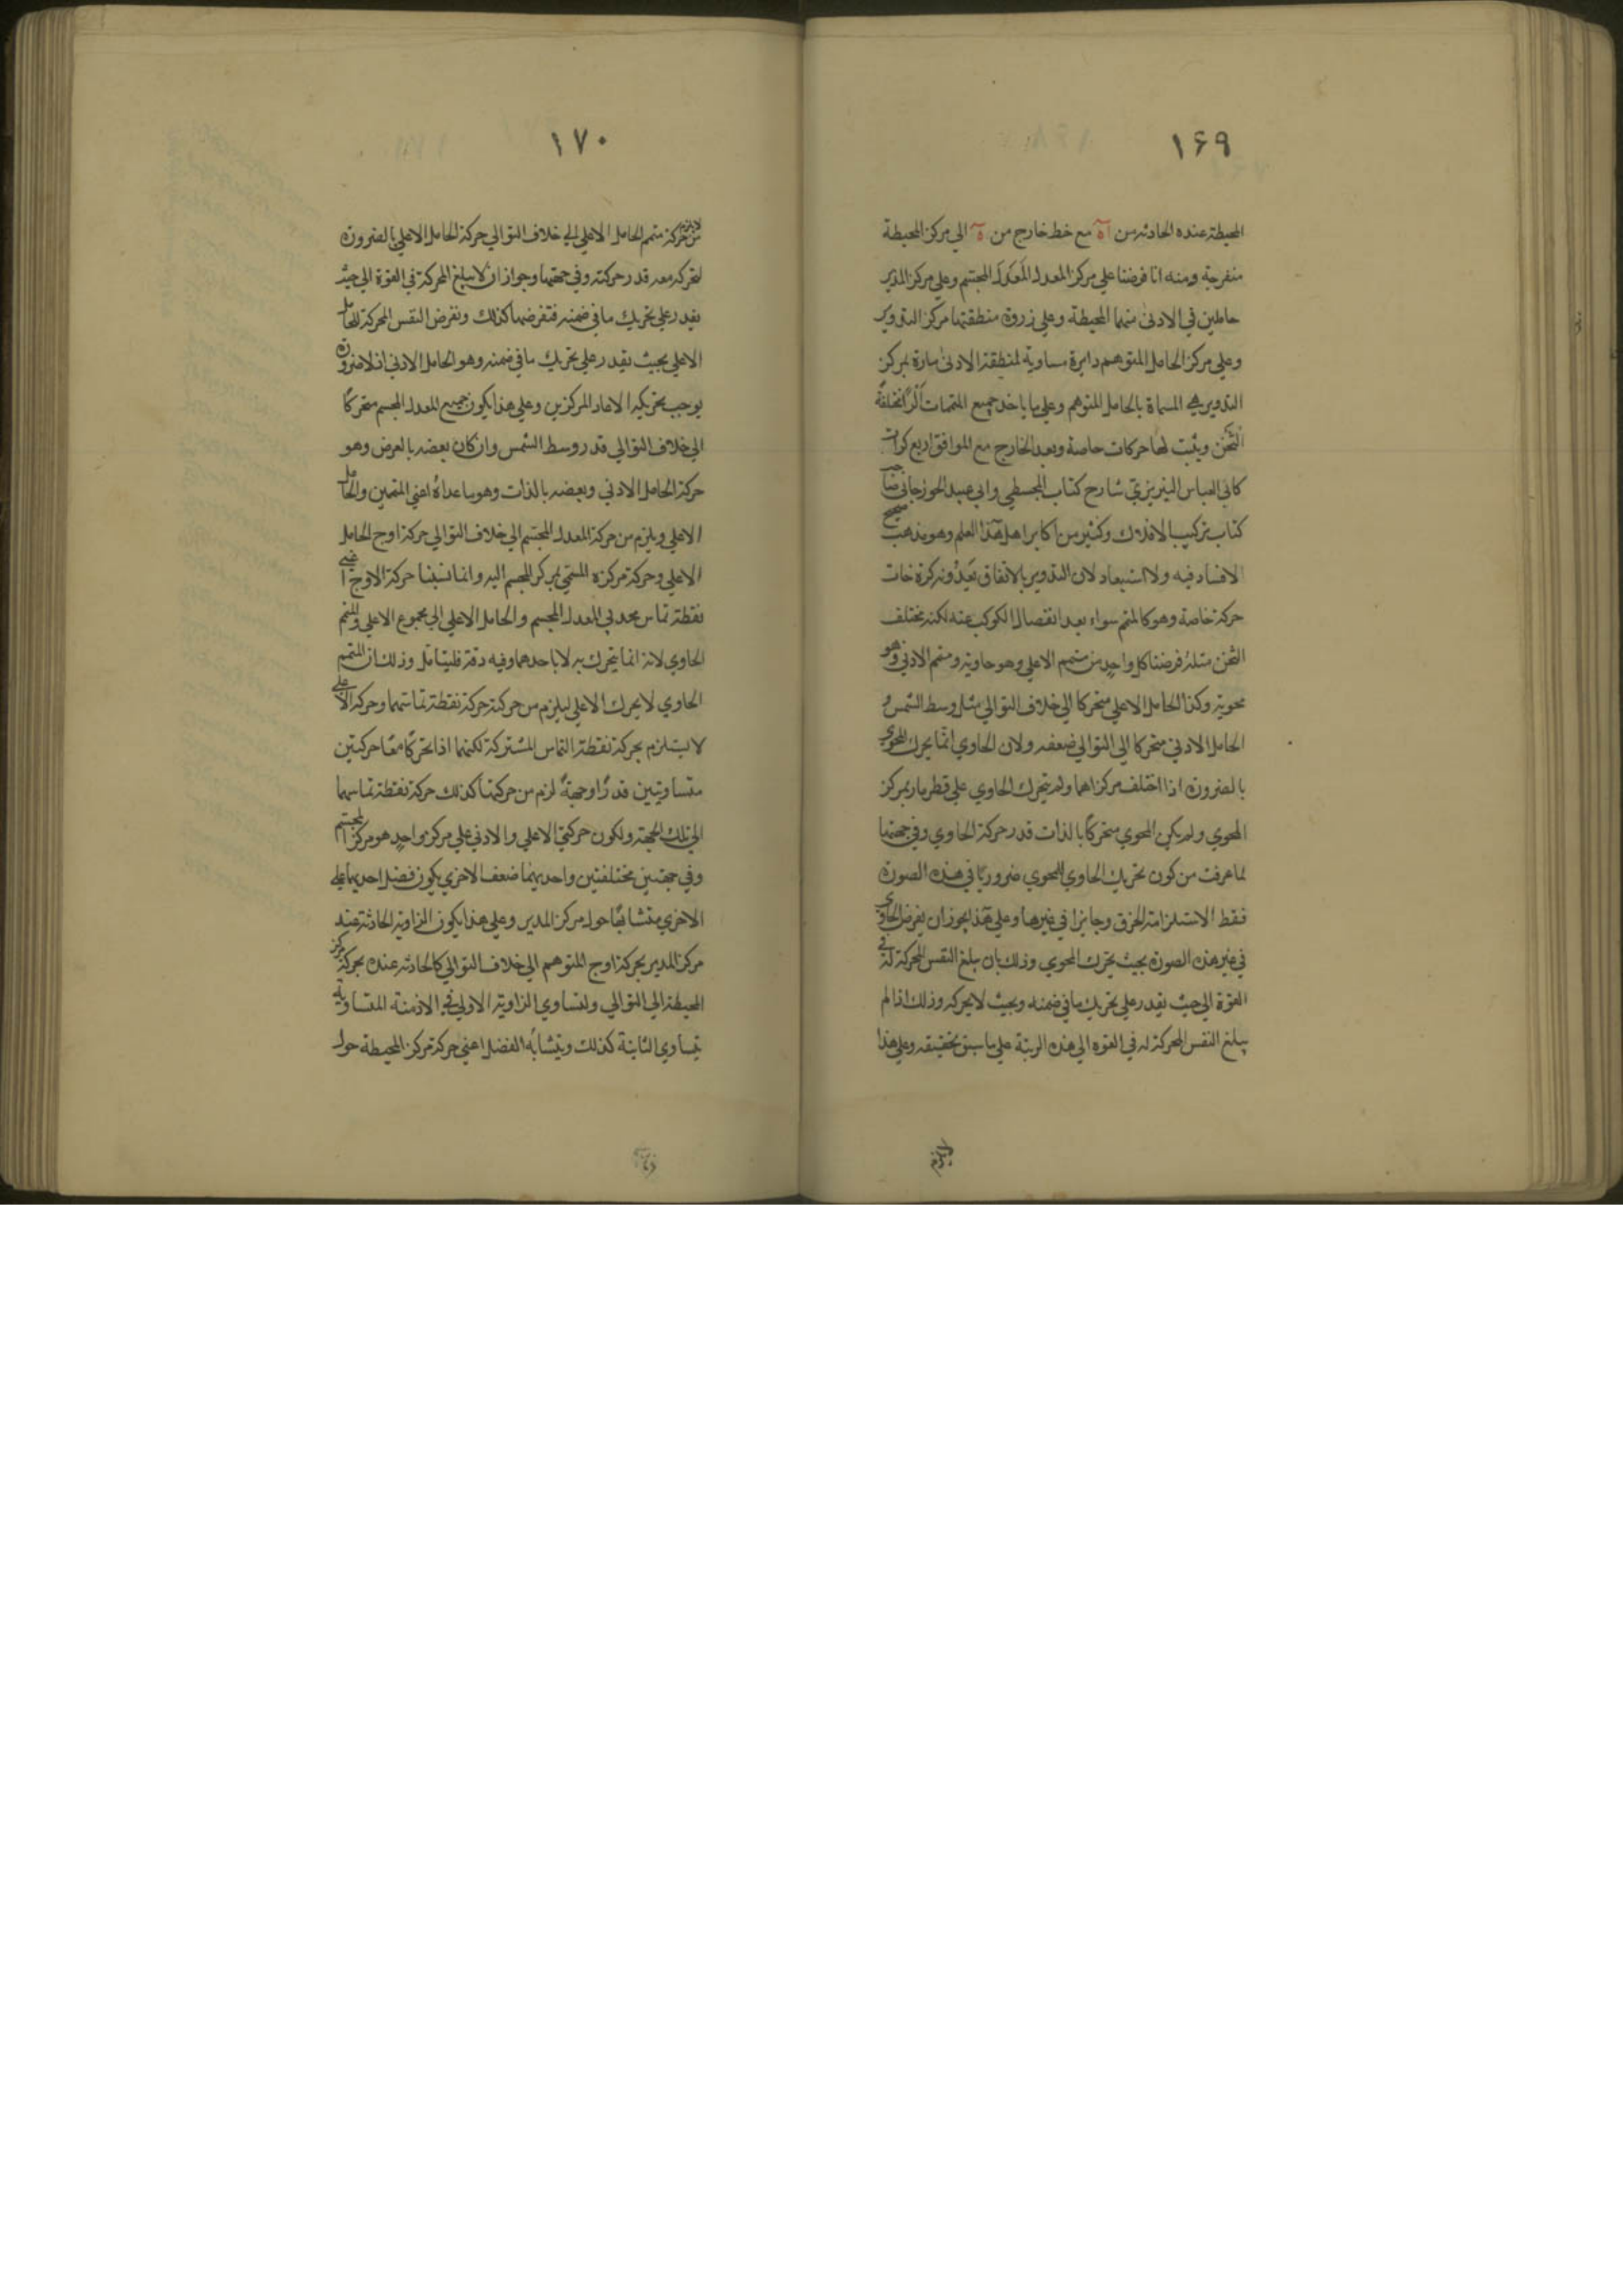 ١۶٩
المحيطة عنده الحادثه من آه مع خط خارج من ه الى مركز المحيطة
منفرجة ومنه انا فرضنا على مركز المعدل المعدل المجسم وعلى مركز المدير
حاملين في الادنى منهما المحيطة وعلى زروة منطقتها مركز التدوير
وعلى مركز الحامل المتوهم دايرة مساوية لمنطقة الادنى مارة بمركز
التدوير هي المسماة بالحامل المتوهم وعلى ما ياخذ جميع المتممات اكرا مختلفة
الثخن ويثبت لها حركات خاصة وبعد الخارج مع الموافق اربع كرات
كابي العباس النيريزي شارح كتاب المجسطي وابي عبيد الجوزجاني صاحب
كتاب تركيب الافلاك وكثير من اكابر اهل هذا العلم وهو مذهب صحيح
لا فساد فيه ولا استبعاد لان التدوير بالاتفاق يعدونه كرة ذات
حركة خاصة وهو كالمتمم سواء بعد انفصال الكوكب عنه لكنه مختلف
الثخن مثله فرضنا كل واحد من متمم الاعلى وهو حاويه ومتمم الادنى وهو
محويه وكذا الحامل الاعلى متحركا الى خلاف التوالي مثل وسط الشمس و
الحامل الادنى متحركا الى التوالي ضعفه ولان الحاوي انما يحرك المحوي
بالضرورة اذا اختلف مركزاهما ولم يتحرك الحاوي على قطر مار بمركز
المحوي ولم يكن المحوي متحركا بالذات قدر حركة الحاوي وفي جهتها
لما عرفت من كون تحريك الحاوي للمحوي ضروريا في هذه الصورة
فقط لاستلزامه الخرق وجايزا في غيرها وعلى هذا يجوز ان يفرض الحاوي
في غير هذه الصورة بحيث يحرك المحوي وذلك بان يبلغ النفس المحركة له في
القوة الى حيث يقدر على تحريك ما في ضمنه وبحيث لا يحركه وذلك اذا لم
يبلغ النفس المحركة له في القوه الى هذه الرتبة على ما سبق تحقيقه وعلى هذا
١٧٠
لا يلزم من حركة متمم الحامل الاعلى الى خلاف التوالي حركة الحامل الاعلى بالضرورة
لتحركه معه قدر حركته وفي جهتها وجواز ان لا يبلغ المحركة في القوة الى حيث
يقدر على تحريك ما في ضمنه فنفرضها كذلك ونفرض النفس المحركة للحامل
الاعلى بحيث يقدر على تحريك ما في ضمنه وهو الحامل الادنى اذ لا ضرورة
يوجب تحريكه الاتحاد المركزين وعلى هذا يكون جميع المعدل المجسم متحركا
الى خلاف التوالي قدر وسط الشمس وان كان بعضه بالعرض وهو
حركة الحامل الادنى وبعضه بالذات وهو ما عداه اعني المتممين والحامل
الاعلى ويلزم من حركة المعدل المجسم الى خلاف التوالي حركة اوج الحامل
الاعلى وحركة مركزه المسمى بمركز المجسم اليه وانما نسبنا حركة الاوج اعني
نقطة تماس محدبي المعدل المجسم والحامل الاعلى الى مجموع الاعلى والمتمم
الحاوي لانه انما يتحرك به لا باحدهما وفيه دقة فليتامل وذلك ان المتمم
الحاوي لا يحرك الاعلى ليلزم من حركته حركة نقطة تماسهما وحركه الاعلى
لا يستلزم بحركة نقطة التماس المشتركة لكنهما اذا تحركا معا حركتين
متساويتين قدرا وجهة لزم من حركتهما كذلك حركة نقطة تماسهما
الى تلك الجهة ولكون حركتي الاعلى والادنى على مركز واحد هو مركز المجسم
وفي جهتين مختلفتين واحديهما ضعف الاخرى يكون فضل احديهما على
الاخرى متشابها حول مركز المدير وعلى هذا يكون الزاوية الحادثة عند
مركز المدير بحركة اوج المتوهم الى خلاف التوالي كالحادثه عنده بحركة مركز
المحيطة الى التوالي ولتساوي الزاوية الاولى في الازمنة المتساوية
يتساوى الثانية كذلك ويتشابه الفضل اعني حركة مركز المحيطة حول